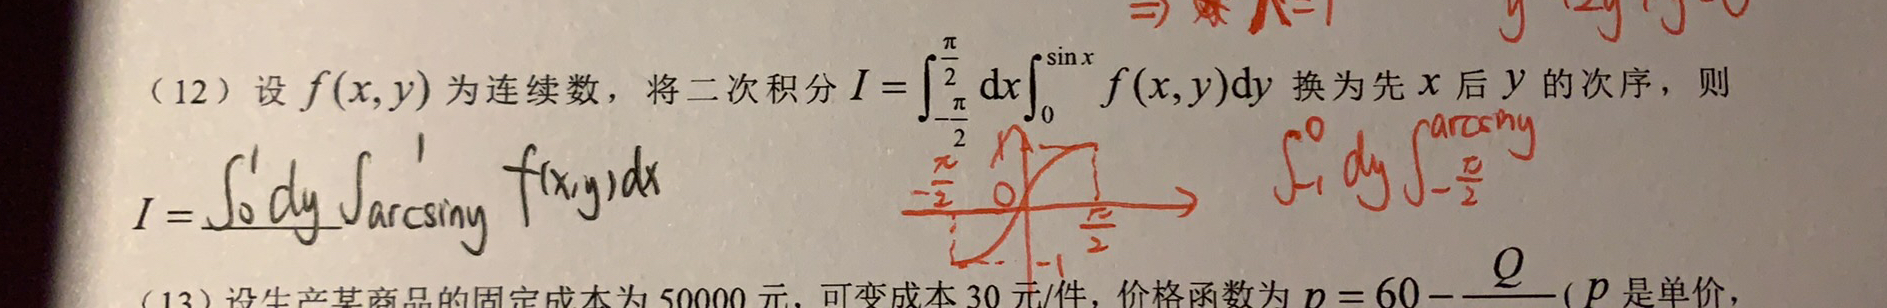 ⇒ λ=1
（12）设 f(x,y) 为连续数，将二次积分 I = ∫_{-π/2}^{π/2} dx ∫_0^{sin x} f(x,y)dy 换为先 x 后 y 的次序，则
I = ∫_0^1 dy ∫_{arcsiny}^1 f(x,y)dx
-π/2 0 π/2 -1
∫_{-1}^0 dy ∫_{-π/2}^{arcsiny}
（13）设生产某商品的固定成本为 50000 元，可变成本 30 元/件，价格函数为 p = 60 − Q （p 是单价，